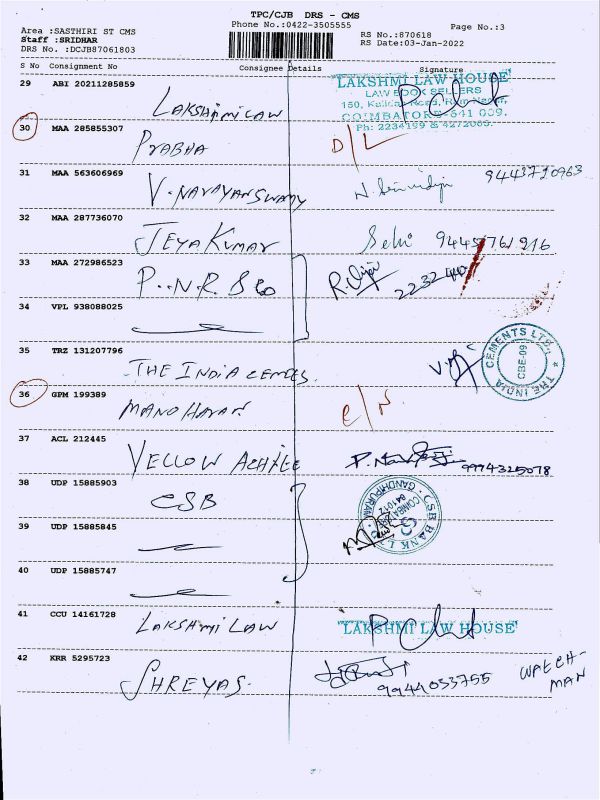 TPC/CJB DRS - CMS
Phone No.:0422-3505555
Page No.:3
Area :SASTHIRI ST CMS
Staff :SRIDHAR
DRS No. :DCJB87061803
RS No.:870618
RS Date:03-Jan-2022
S No Consignment No Consignee Details Signature
29 ABI 20211285859 LAKSHMI LAW
LAKSHMI LAW HOUSE
LAW BOOK SELLERS
COIMBATORE-641 009.
Ph: 2234199 & 4272063.
30 MAA 285855307 PRABHA D/L
31 MAA 563606969 V. NARAYANSWAMY 9443720963
32 MAA 287736070 JEYAKUMAR Selvi 9445761916
33 MAA 272986523 P..N.R. & Co
34 VPL 938088025
35 TRZ 131207796 THE INDIA CEMENTS.
THE INDIA CEMENTS LTD. CBE-09
36 GPM 199389 MANOHARAN
37 ACL 212445 YELLOW 9994325078
38 UDP 15885903 CSB
CSB BANK L GANDHIPURAM
39 UDP 15885845
40 UDP 15885747
41 CCU 14161728 LAKSHMI LAW
LAKSHMI LAW HOUSE
42 KRR 5295723 SHREYAS. 9944033755 WATCH-
MAN